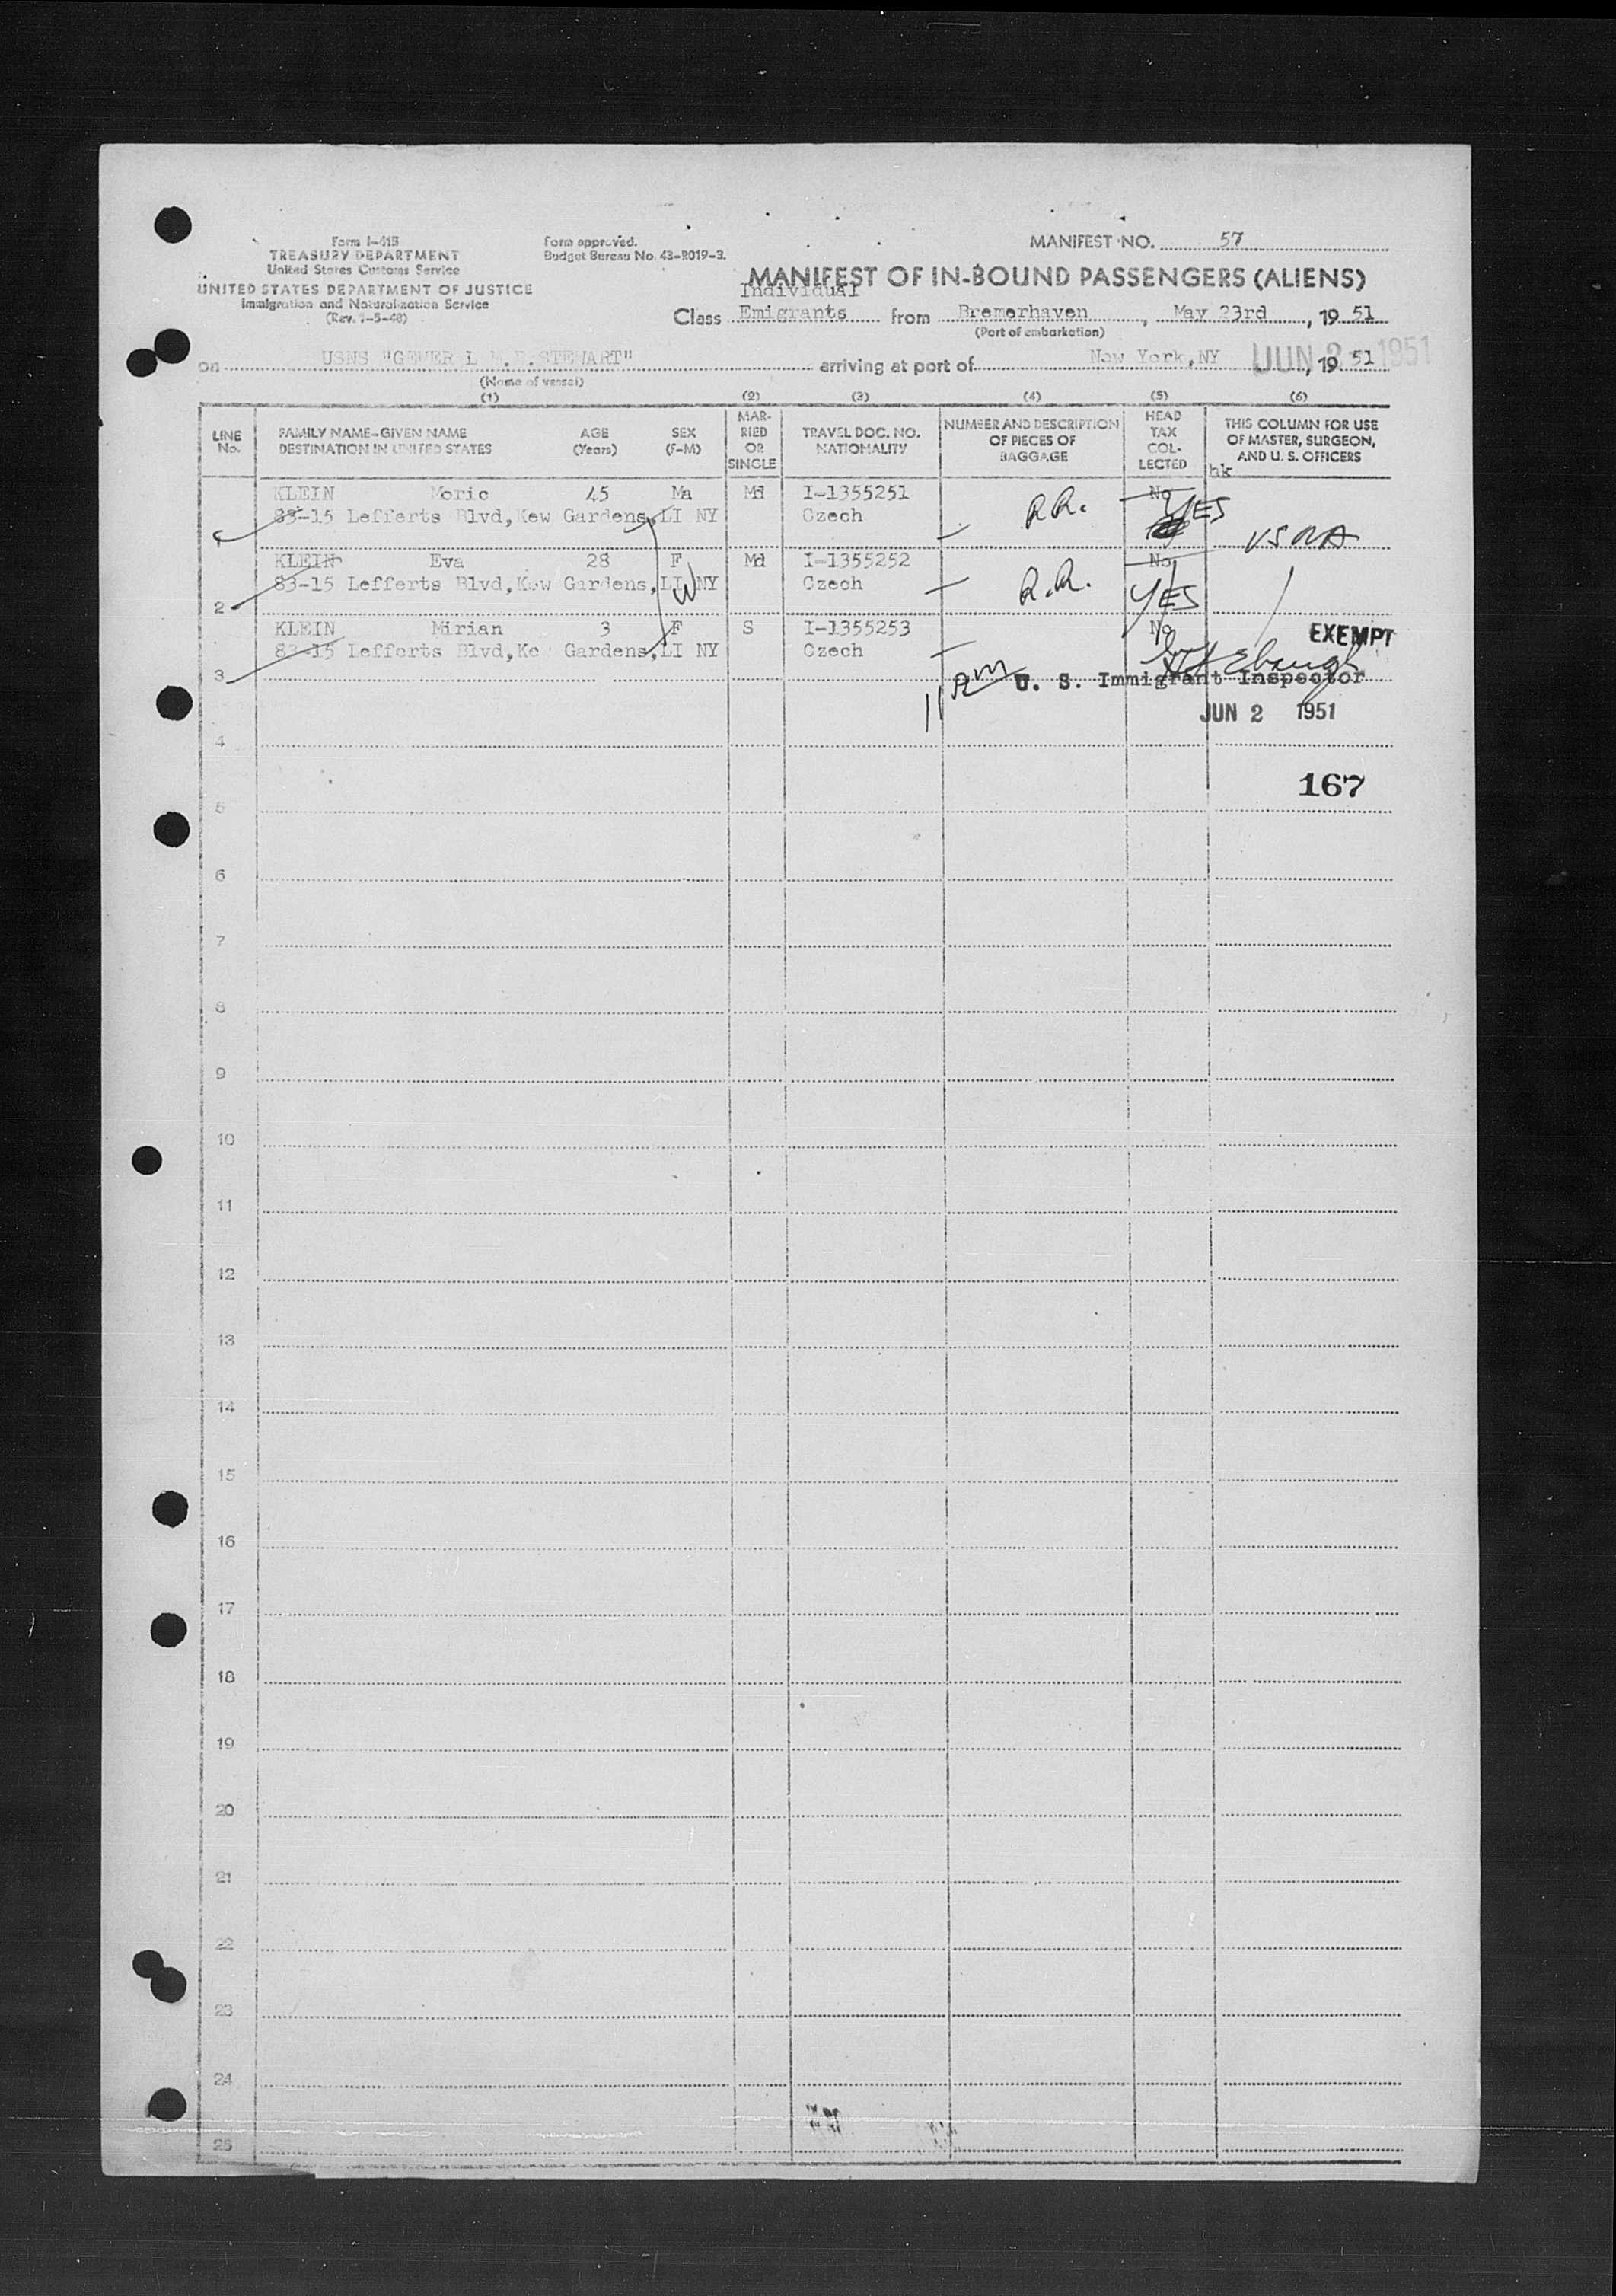 Form I-415
TREASURY DEPARTMENT
United States Customs Service
UNITED STATES DEPARTMENT OF JUSTICE
Immigration and Naturalization Service
Form approved.
Budget Bureau No. 43-R019-3.
MANIFEST NO. 57
MANIFEST OF IN-BOUND PASSENGERS (ALIENS)
Individual
Class Emigrants from Bremerhaven, May 23rd, 19 51
(Port of embarkation)
on USNS "GENER L M.  .STEWART" arriving at port of New York,NY JUN 2 1951, 19 51
(Name of vessel)
(1) (2) (3) (4) (5) (6)
LINE No. FAMILY NAME-GIVEN NAME DESTINATION IN UNITED STATES AGE (Years) SEX (F-M) MARRIED OR SINGLE TRAVEL DOC. NO. NATIONALITY NUMBER AND DESCRIPTION OF PIECES OF BAGGAGE HEAD TAX COLLECTED THIS COLUMN FOR USE OF MASTER, SURGEON, AND U. S. OFFICERS
hk
KLEIN Moric 45 Ma Md I-1355251 R.R. No YES
1 83-15 Lefferts Blvd,Kew Gardens,LI NY Czech USNA
KLEIN Eva 28 F Md I-1355252 R.R. No
2 83-15 Lefferts Blvd,Kew Gardens,LI NY Czech YES
KLEIN Mirian 3 F S I-1355253 No EXEMPT
3 83-15 Lefferts Blvd,Ke  Gardens,LI NY Czech
11 AM U. S. Immigrant Inspector
JUN 2 1951
4
167
5
6
7
8
9
10
11
12
13
14
15
16
17
18
19
20
21
22
23
24
25